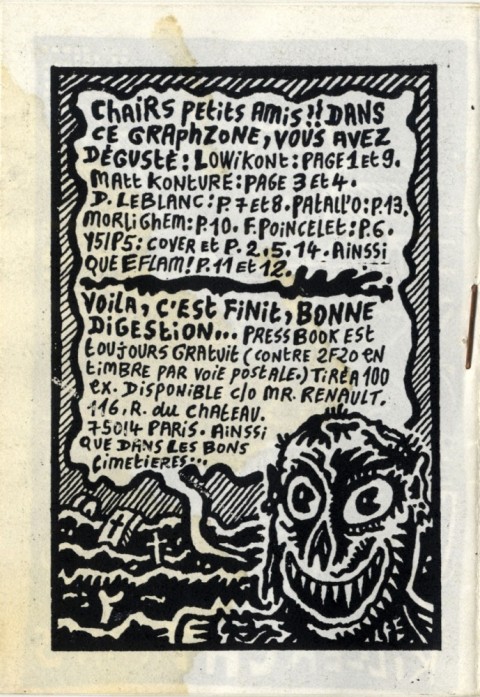 CHAIRS PETITS AMIS!! DANS
CE GRAPHZONE, VOÜS AVEZ
DÉGUSTÉ: LOWIKONT: PAGE 1 ET 9.
MATT KONTURE: PAGE 3 ET 4.
D. LEBLANC: P. 7 ET 8. PATALL'O: P. 13.
MORLIGHEM: P. 10. F. POINCELET: P. 6.
Y5/P5: COVER ET P. 2. 5. 14. AINSSI
QUE EFLAM! P. 11 ET 12.
VOILA, C'EST FINIT, BONNE
DIGESTION... PRESS BOOK EST
TOUJOURS GRATUIT (CONTRE 2F20 EN
TIMBRE PAR VOIE POSTALE.) TIRÉ A 100
EX. DISPONIBLE C/O MR. RENAULT.
116, R. du CHATEAU.
75014 PARIS. AINSSI
QUE DANS LES BONS
CIMETIERES...